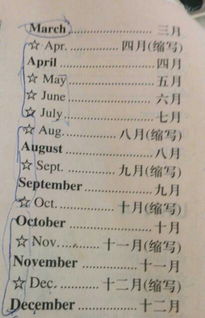 March ............... 三月
☆ Apr. ............ 四月(缩写)
April ................. 四月
☆ May ............... 五月
☆ June .............. 六月
☆ July ............... 七月
☆ Aug. ........... 八月(缩写)
August ............... 八月
☆ Sept. .......... 九月(缩写)
September ............ 九月
☆ Oct. ........... 十月(缩写)
October .............. 十月
☆ Nov. ....... 十一月(缩写)
November ........... 十一月
☆ Dec. ....... 十二月(缩写)
December ........... 十二月